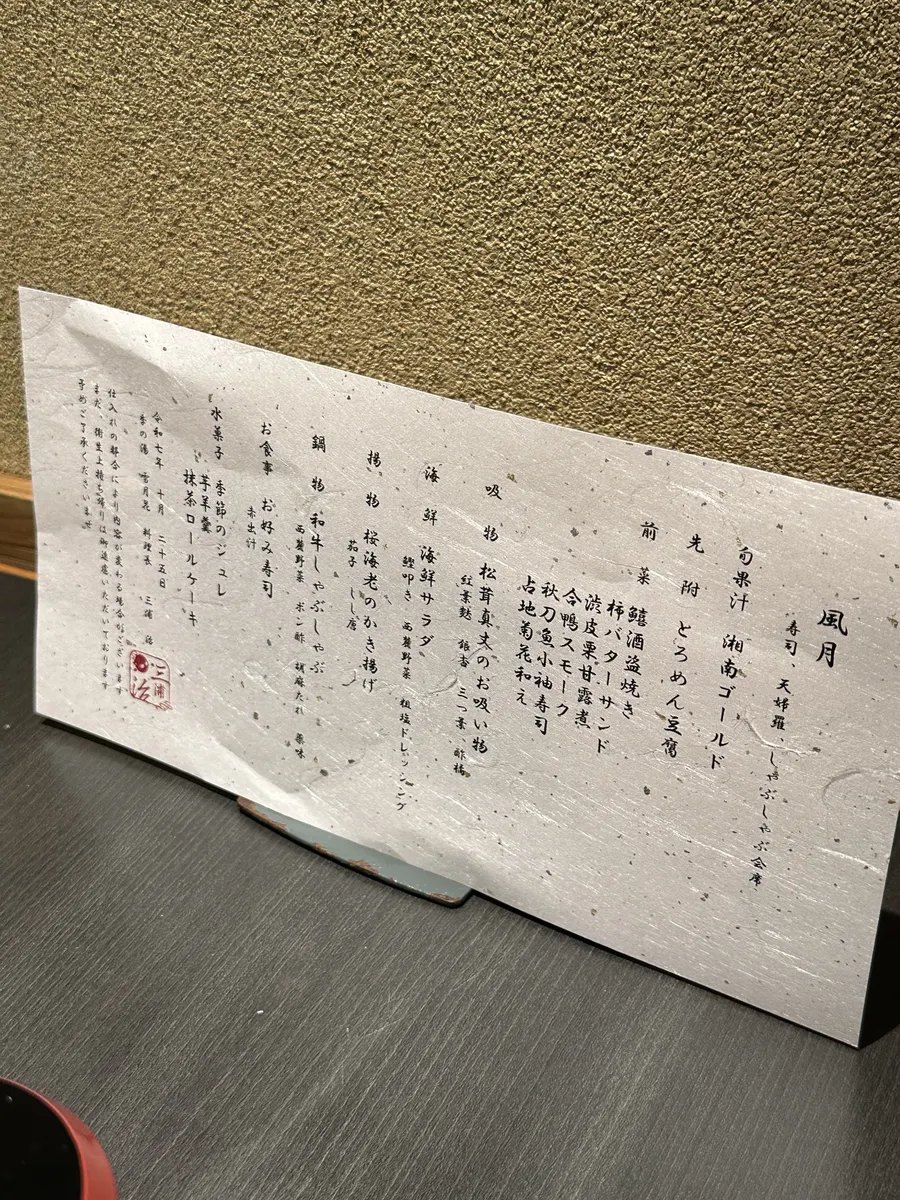 風月
寿司、天婦羅、しゃぶしゃぶ会席
旬果汁 湘南ゴールド
先附 とろめん豆腐
前菜 鱚酒盗焼き
柿バターサンド
渋皮栗甘露煮
合鴨スモーク
秋刀魚小袖寿司
占地菊花和え
吸物 松茸真丈のお吸い物
紅葉麩 銀杏 三つ葉 酢橘
海鮮 海鮮サラダ
鰹叩き 西麓野菜 粗塩ドレッシング
揚物 桜海老のかき揚げ
茄子 しし唐
鍋物 和牛しゃぶしゃぶ
西麓野菜 ポン酢 胡麻たれ 薬味
お食事 お好み寿司
赤出汁
水菓子 季節のジュレ
芋羊羹
抹茶ロールケーキ
令和七年 十月 二十五日
季の湯 雪月花 料理長 三浦 治
仕入れの都合により内容が変わる場合がございます
また、衛生上持ち帰りは御遠慮いただいております
予めご了承くださいませ
三浦
治